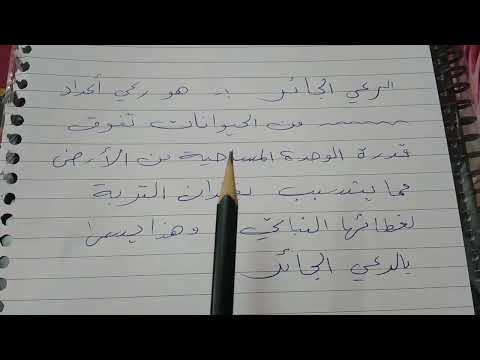 الرعي الجائر :- هو رعي أعداد
من الحيوانات تفوق
قدرة الوحدة المساحية من الأرض
مما يتسبب فقدان التربة
لغطائها النباتي وهذا يسمى
بالرعي الجائر